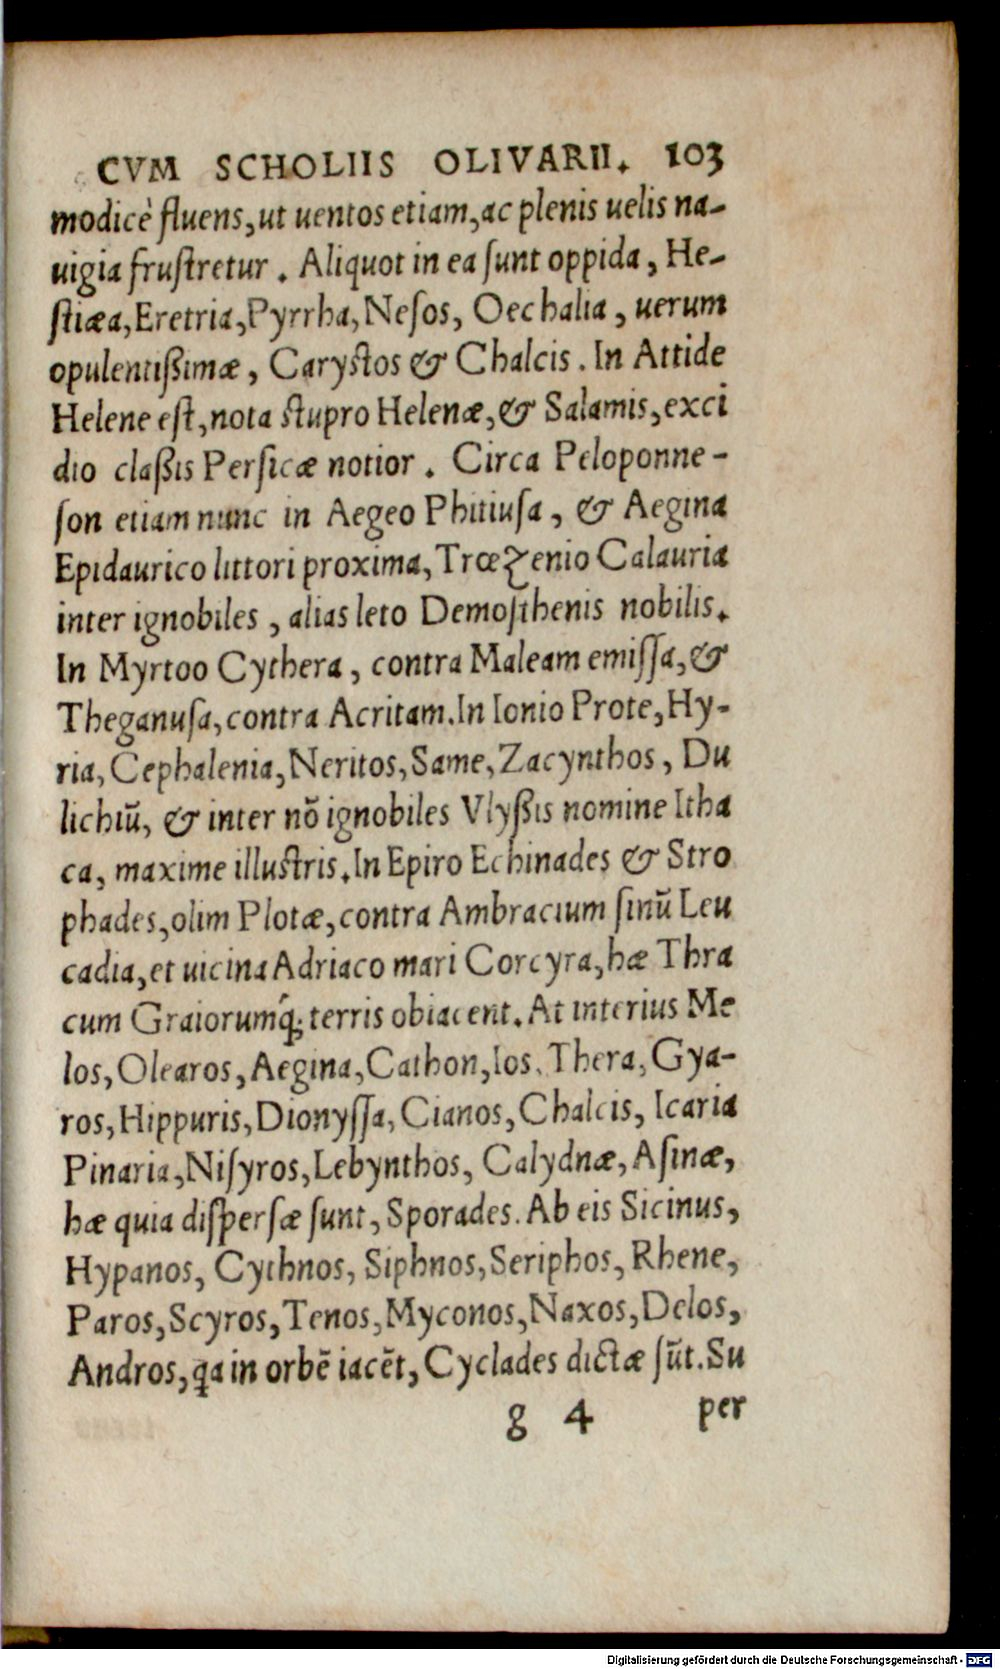 CVM SCHOLIIS OLIVARII. 103
modicè fluens, ut uentos etiam, ac plenis uelis na-
uigia frustretur. Aliquot in ea sunt oppida, He-
stiæa, Eretria, Pyrrha, Nesos, Oechalia, uerum
opulentißimæ, Carystos & Chalcis. In Attide
Helene est, nota stupro Helenæ, & Salamis, exci
dio claßis Persicæ notior. Circa Peloponne-
son etiam nunc in Aegeo Phitiusa, & Aegina
Epidaurico littori proxima, Trœzenio Calauria
inter ignobiles, alias leto Demosthenis nobilis.
In Myrtoo Cythera, contra Maleam emissa, &
Theganusa, contra Acritam. In Ionio Prote, Hy-
ria, Cephalenia, Neritos, Same, Zacynthos, Du
lichiũ, & inter nõ ignobiles Vlyßis nomine Itha
ca, maxime illustris. In Epiro Echinades & Stro
phades, olim Plotæ, contra Ambracium sinũ Leu
cadia, et uicina Adriaco mari Corcyra, hæ Thra
cum Graiorumq́; terris obiacent. At interius Me
los, Olearos, Aegina, Cathon, Ios. Thera, Gya-
ros, Hippuris, Dionyssa, Cianos, Chalcis, Icaria
Pinaria, Nisyros, Lebynthos, Calydnæ, Asinæ,
hæ quia dispersæ sunt, Sporades. Ab eis Sicinus,
Hypanos, Cythnos, Siphnos, Seriphos, Rhene,
Paros, Scyros, Tenos, Myconos, Naxos, Delos,
Andros, ꝗa in orbẽ iacẽt, Cyclades dictæ sũt. Su
g 4 per
Digitalisierung gefördert durch die Deutsche Forschungsgemeinschaft - DFG